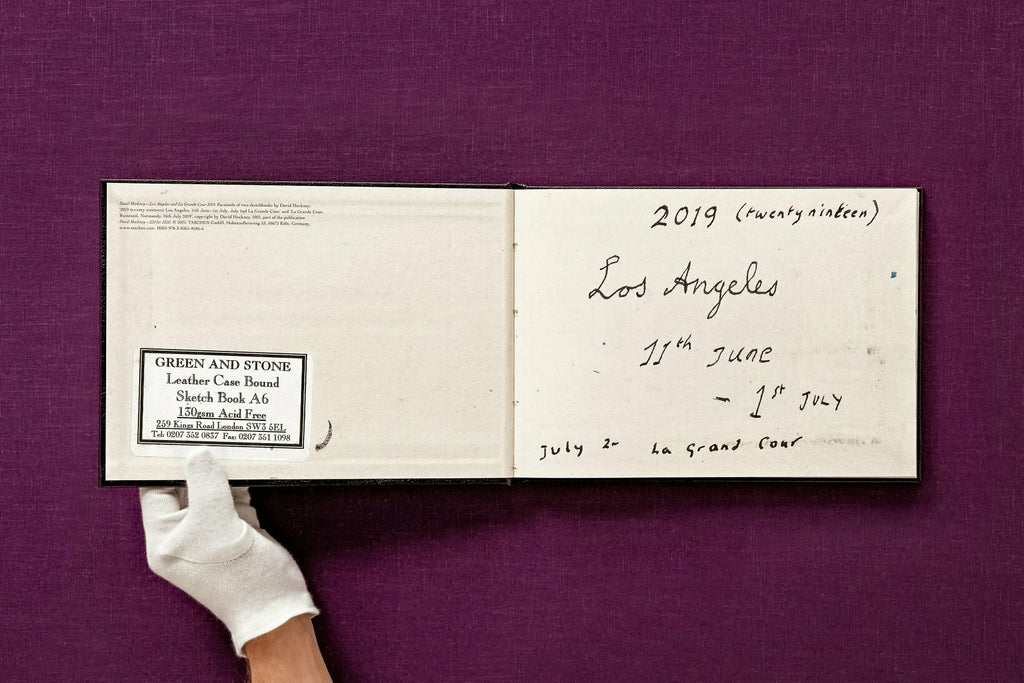 David Hockney—Los Angeles and La Grande Cour 2019. Facsimile of two sketchbooks by David Hockney:
'2019 (twenty nineteen) Los Angeles, 11th June–1st July, July 2nd La Grande Cour' and 'La Grande Cour
Normandy, 16th July 2019', copyright by David Hockney, 2021, part of the publication
David Hockney—220 for 2020. © 2021, TASCHEN GmbH, Hohenzollernring 53, 50672 Köln, Germany,
www.taschen.com ISBN
GREEN AND STONE
Leather Case Bound
Sketch Book A6
130gsm Acid Free
259 Kings Road London SW3 5EL
Tel: 0207 352 0837 Fax: 0207 351 1098
2019 (twenty nineteen)
Los Angeles
11th JUNE
- 1st JULY
July 2- La Grand Cour